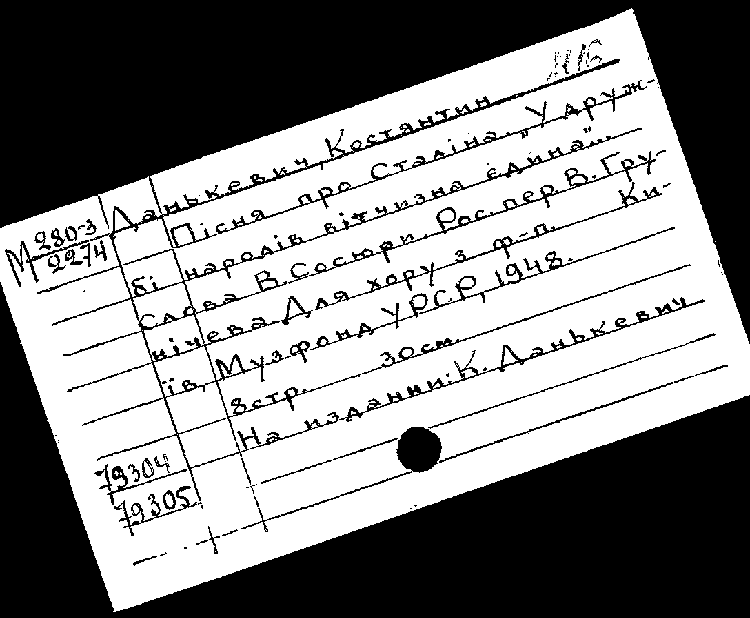 Данькевич, Костянтин
М 280-3
2274
Пісня про Сталіна. „У друж-
бі народів вітчизна єдина"...
Слова В. Сосюри. Рос. пер. В. Гру-
нічева. Для хору з ф-п. Ки-
їв, Музфонд УРСР, 1948.
8 стр. 30 см.
На издании: К. Данькевич
79304
79305